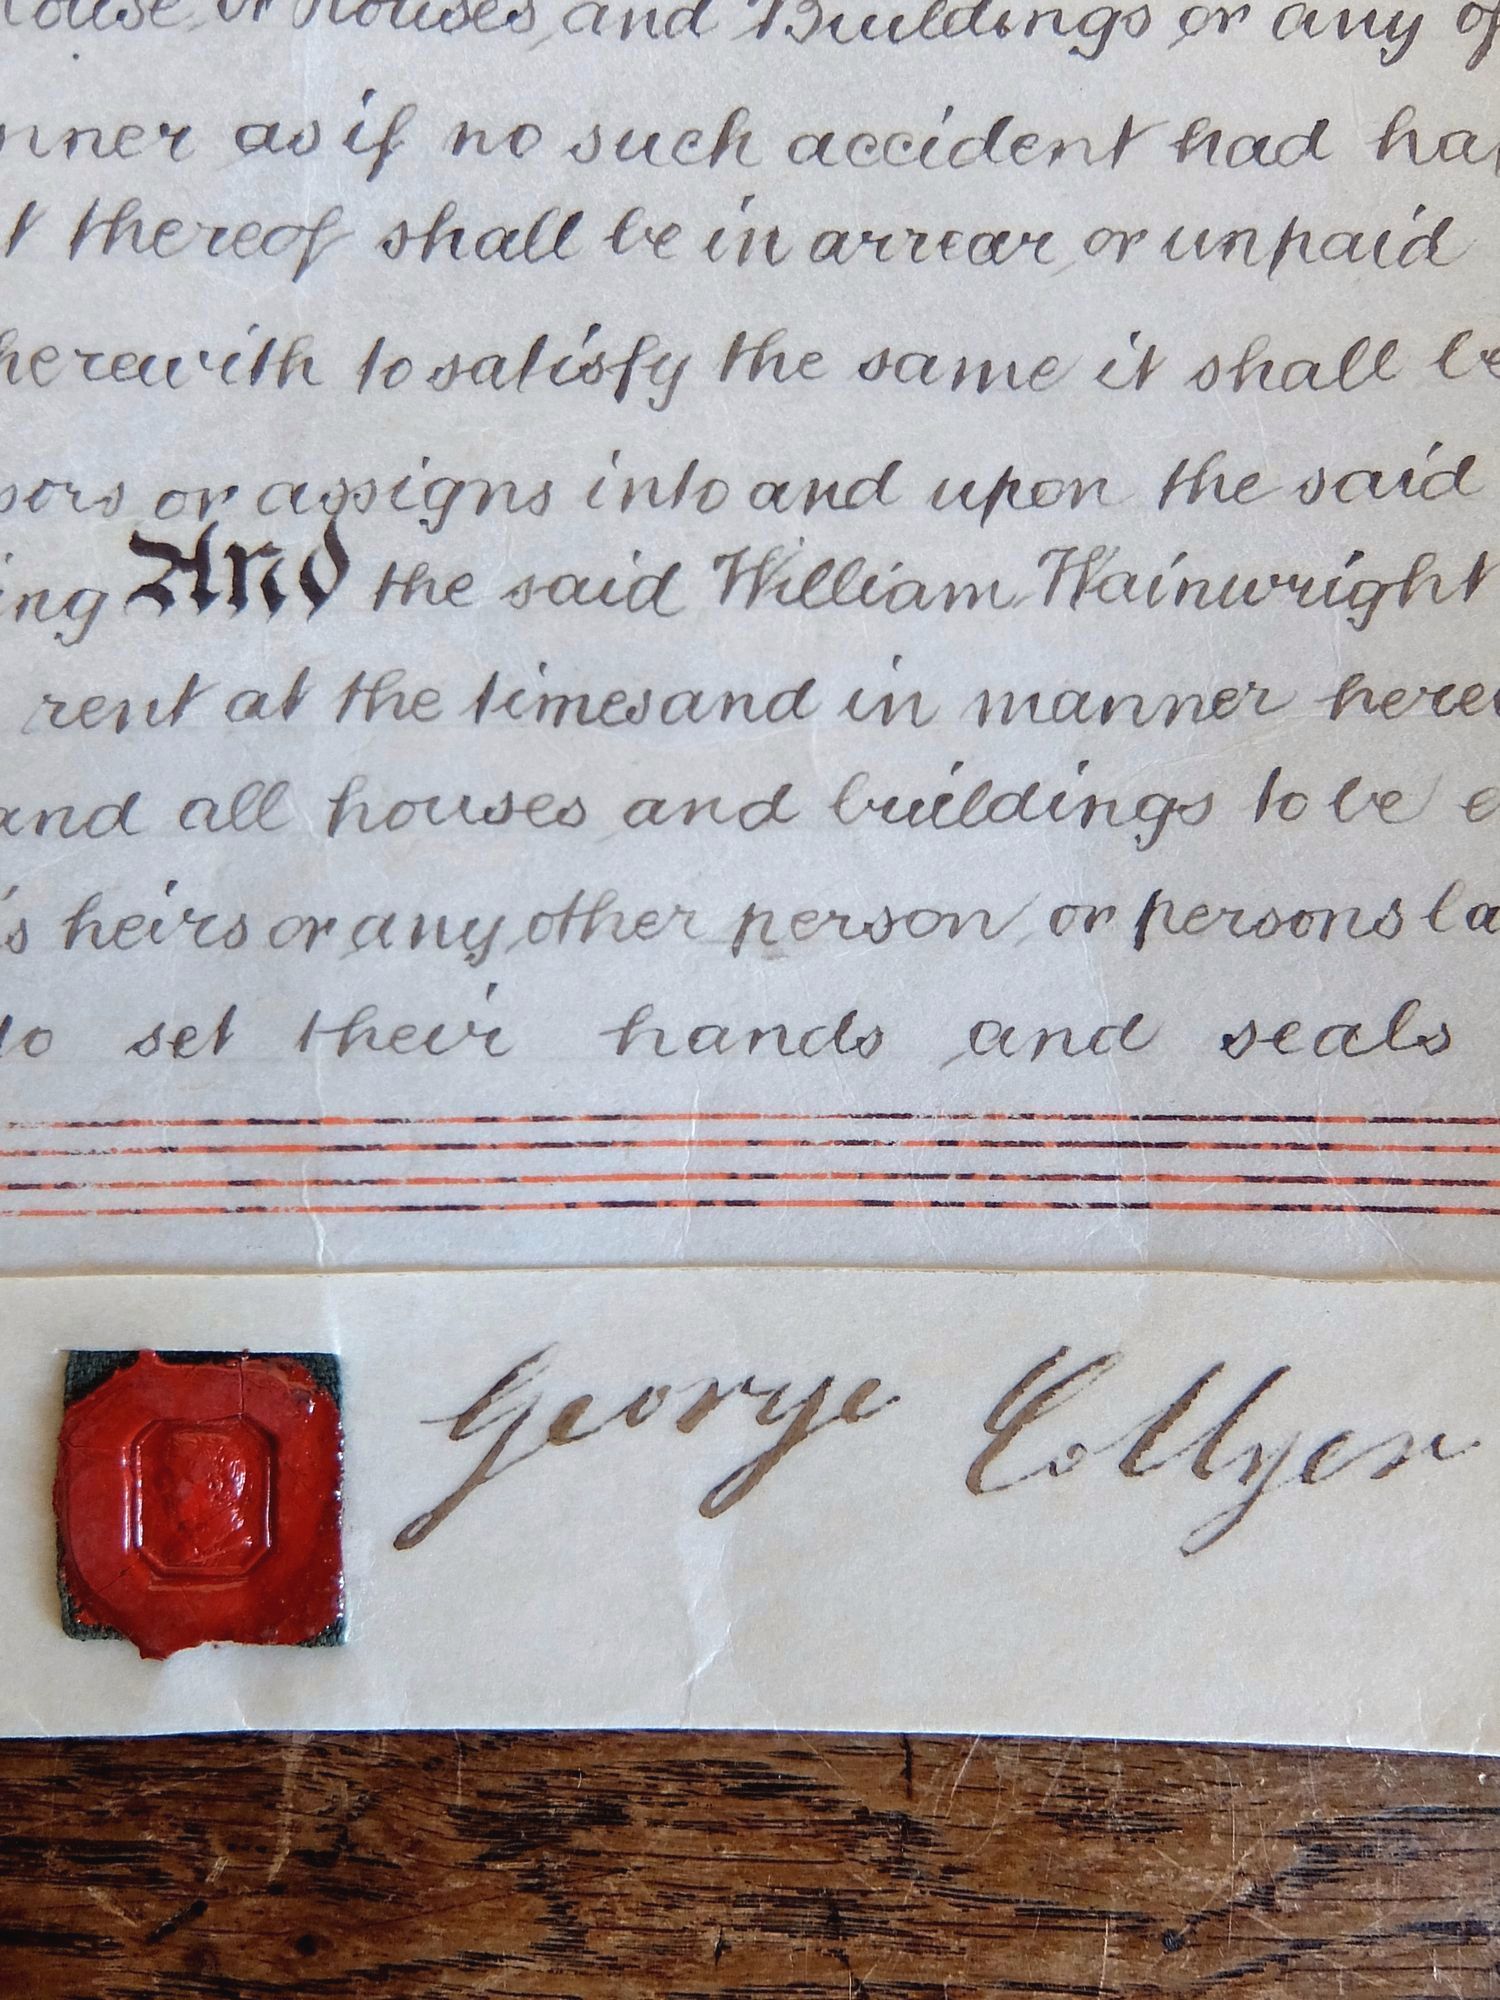 House or Houses and Buildings or any of
nner as if no such accident had hap
t thereof shall be in arrear or unpaid
herewith to satisfy the same it shall be
sors or assigns into and upon the said
ing And the said William Wainwright
rent at the times and in manner herei
and all houses and buildings to be e
s heirs or any other person or persons la
to set their hands and seals
George Collyer